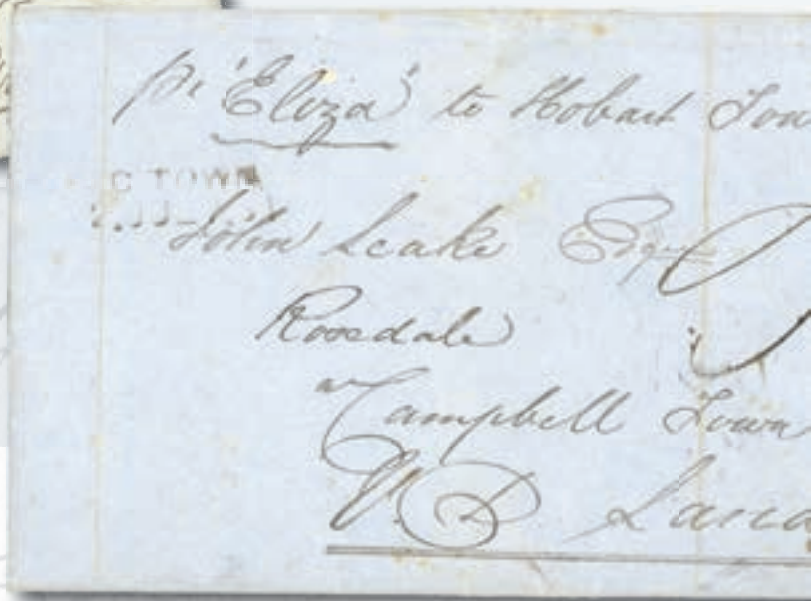 pr 'Eliza' to Hobart Tow
C TOWN
John Leake Esqre
Rosedale
Campbell Town
V. D Land